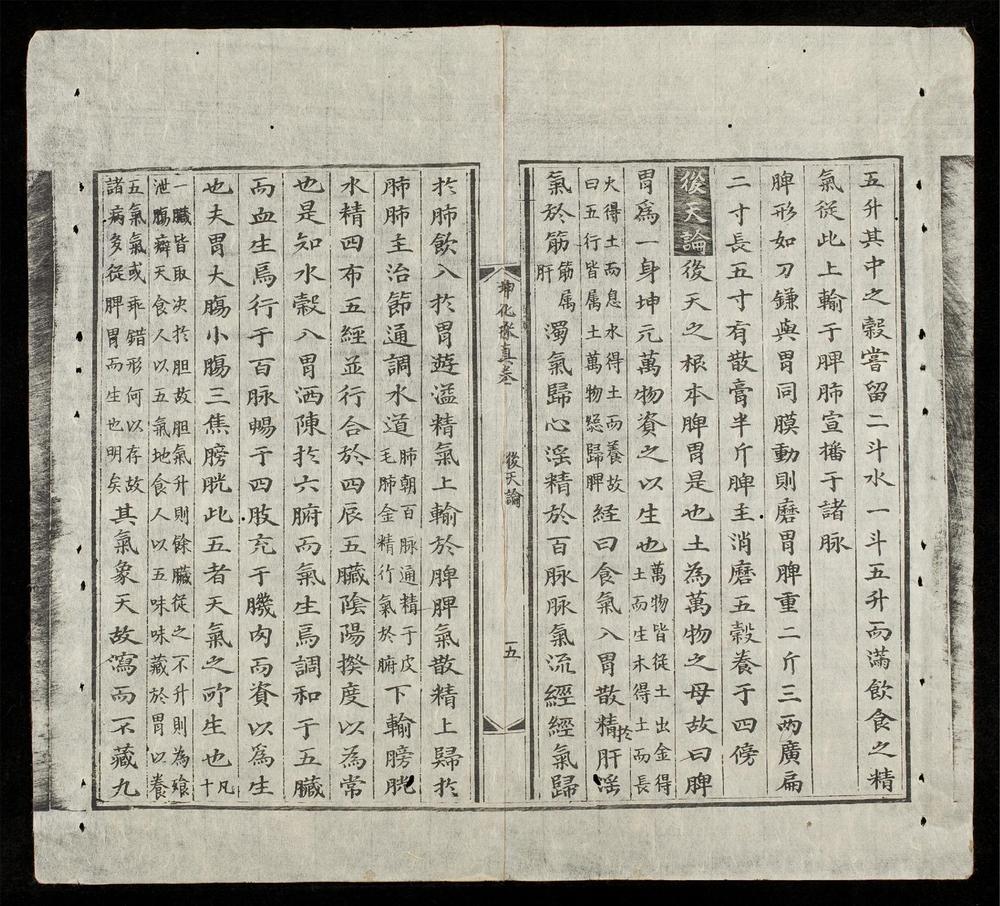 五升其中之穀嘗留二斗水一斗五升而滿飲食之精
氣從此上輸于脾肺宣播于諸脉
脾形如刀鎌與胃同膜動則磨胃脾重二斤三两廣扁
二寸長五寸有散膏半斤脾主消磨五穀養于四傍
後天論後天之根本脾胃是也土為萬物之母故曰脾
胃爲一身坤元萬物資之以生也萬物皆從土出金得
土而生木得土而長
火得土而息水得土而養故
曰五行皆属土萬物終歸脾経曰食氣入胃散精於肝淫
氣於筋筋属
肝濁氣歸心淫精於百脉脉氣流經經氣歸
坤化採真卷 後天論 五
於肺飲入於胃遊溢精氣上輸於脾脾氣散精上歸於
肺肺主治節通調水道肺朝百脉通精于皮
毛肺金精行氣於腑下輸膀胱
水精四布五經並行合於四辰五臟陰陽揆度以為常
也是知水榖入胃洒陳於六腑而氣生焉調和于五臟
而血生焉行于百脉暢于四肢充于臓肉而資以爲生
也夫胃大膓小膓三焦膀胱此五者天氣之所生也凡
十
一臟皆取决於胆故胆氣升則餘臟從之不升則為飧
泄膓癖天食人以五氣地食人以五味味藏於胃以養
五氣氣或乖錯形何以存故
諸病多從脾胃而生也明矣其氣象天故瀉而不藏九